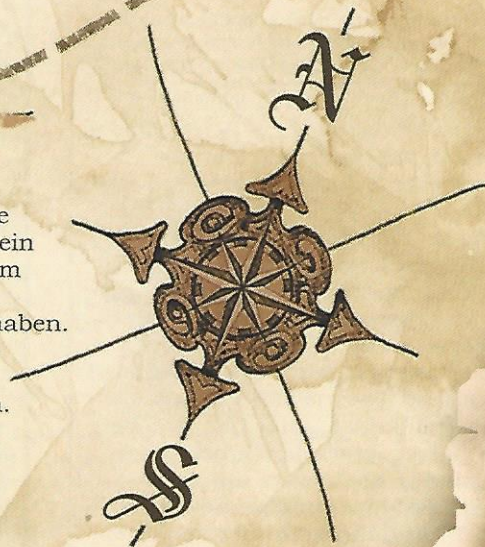 N
e
ein
m
haben.
.
S